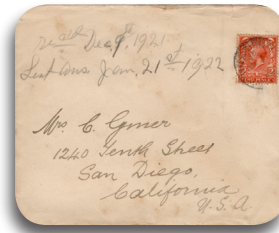 Dec 9th, 1921
Sent ans. Jan, 21st 1922
Mrs. C.
1240 Tenth Street
San Diego,
California
U.S.A